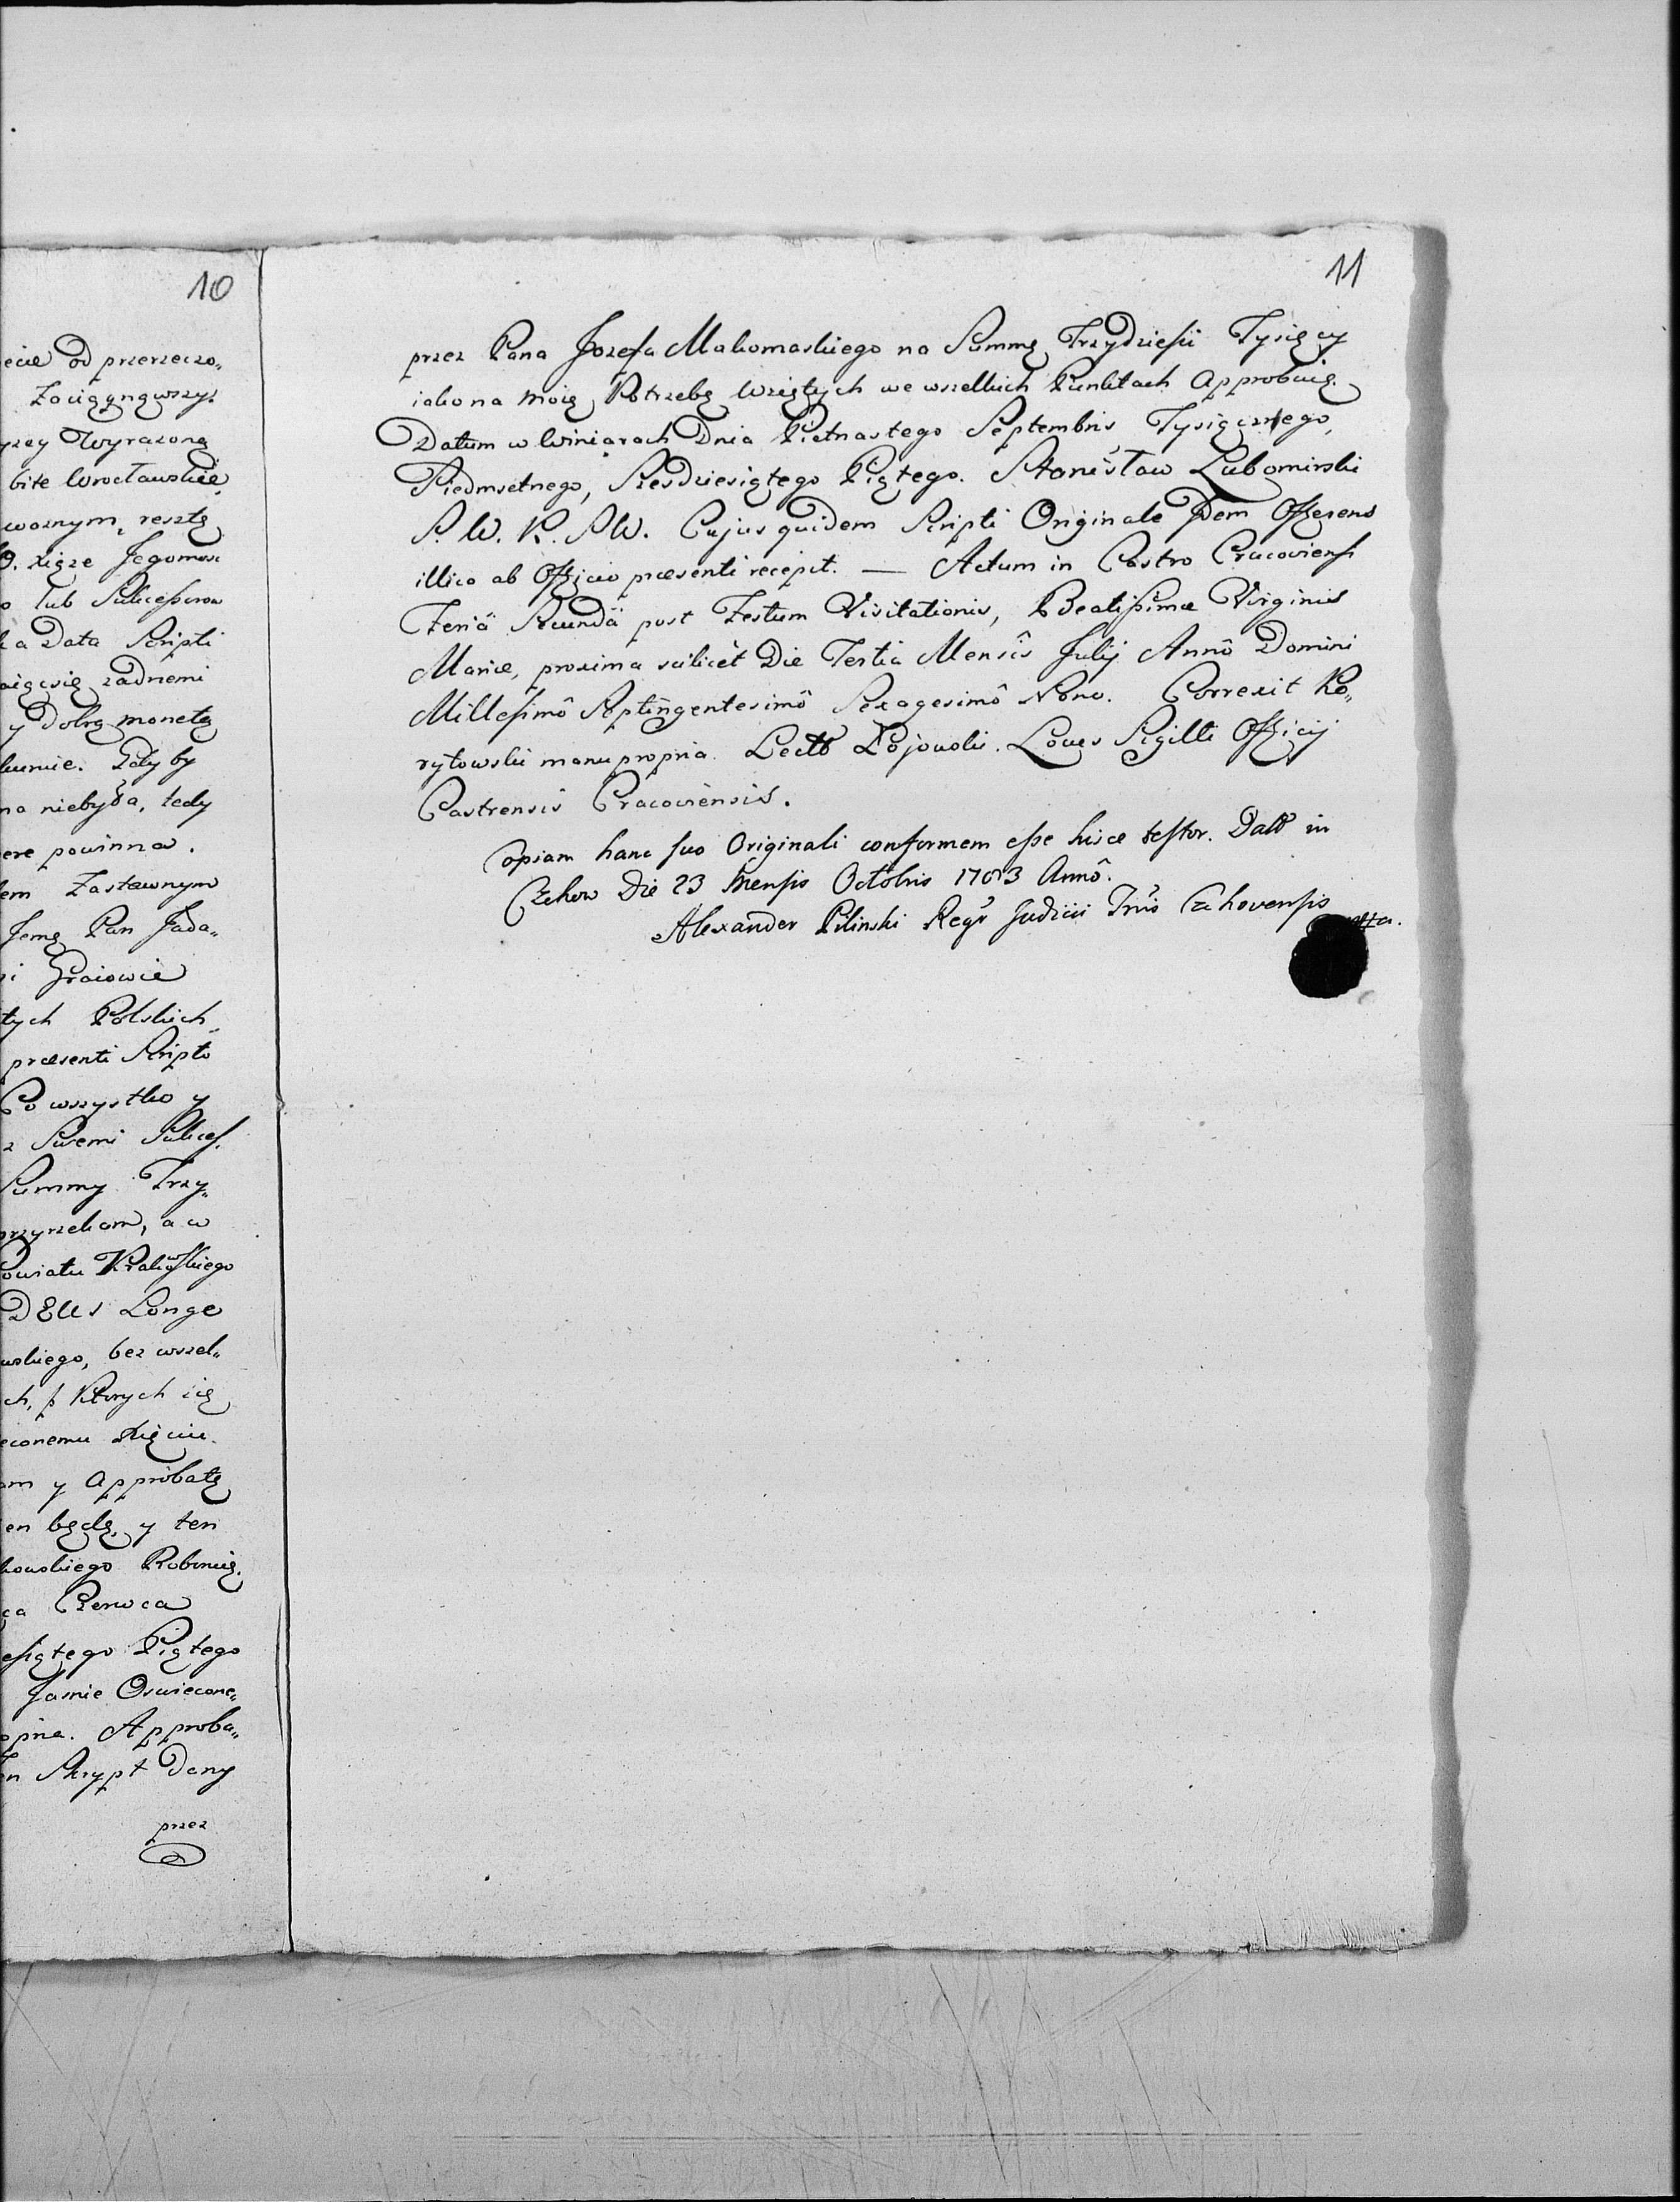 10
ecie od przerzeczo„
Zaciągnąwszy
yzey Wyrazoną
bite Wrocławskie
woznym, resztę
O. Xiąze Jegomosc
o lub Sukcessorow
a Data Scripti
aiącsię zadnemi
y dobrą monetą
kunie. Gdy by
na niebyła, tedy
ere powinna.
em Zastawnym
Jemę Pan Jada„
i Graiowie
tych Polskich
præsenti Scripto
Co wszystko y
z Swemi Sukces.
Summy Trzy„
przyrzekam, a w
Powiatu Krakowskiego
DEUS Longe
wskiego, bez wszel„
ch, z Ktorych ię
econemu Xięciu
am y Approbatę
en będę, y ten
kowskiego Roboruię.
ca Czerwca
esiątego Piątego
Jasnie Oswiecone„
opria. Approba„
en Skrypt Dany
przez
11
przez Pana Jozefa Makomaskiego na Summę Trzydziesci Tysięcy
iako na moię Potrzebę Wziętych we wszelkich Punktach Approbuię.
Datum w Winiarach Dnia Pietnastego Septembris Tysiącznego,
Siedmsetnego, Szesdziesiątego Piątego. Stanisław Lubomirski
P. W. K. P W. Cujus quidem Scripti Originale Idem Offerens
illico ab Officio præsenti recepit. — Actum in Castro Cracoviensi
Feriâ Secundâ post Festum Visitationis, Beatissimæ Virginis
Mariæ, proxima scilicèt Die Tertia Mensis Julij Annô Domini
Millesimô Septingentesimô Sexagesimô Nono. Correxit Ko„
rytowski manu propria. Lectt Łojowski. Locus Sigilli Officij
Castrensis Cracoviensis.
Copiam hanc suo Originali conformem esse hisce testor. Datt in
Czchow Die 23 Mensis Octobris 1783 Annô.
Alexander Pilinski Regr Judicii Trris Czchoviensis